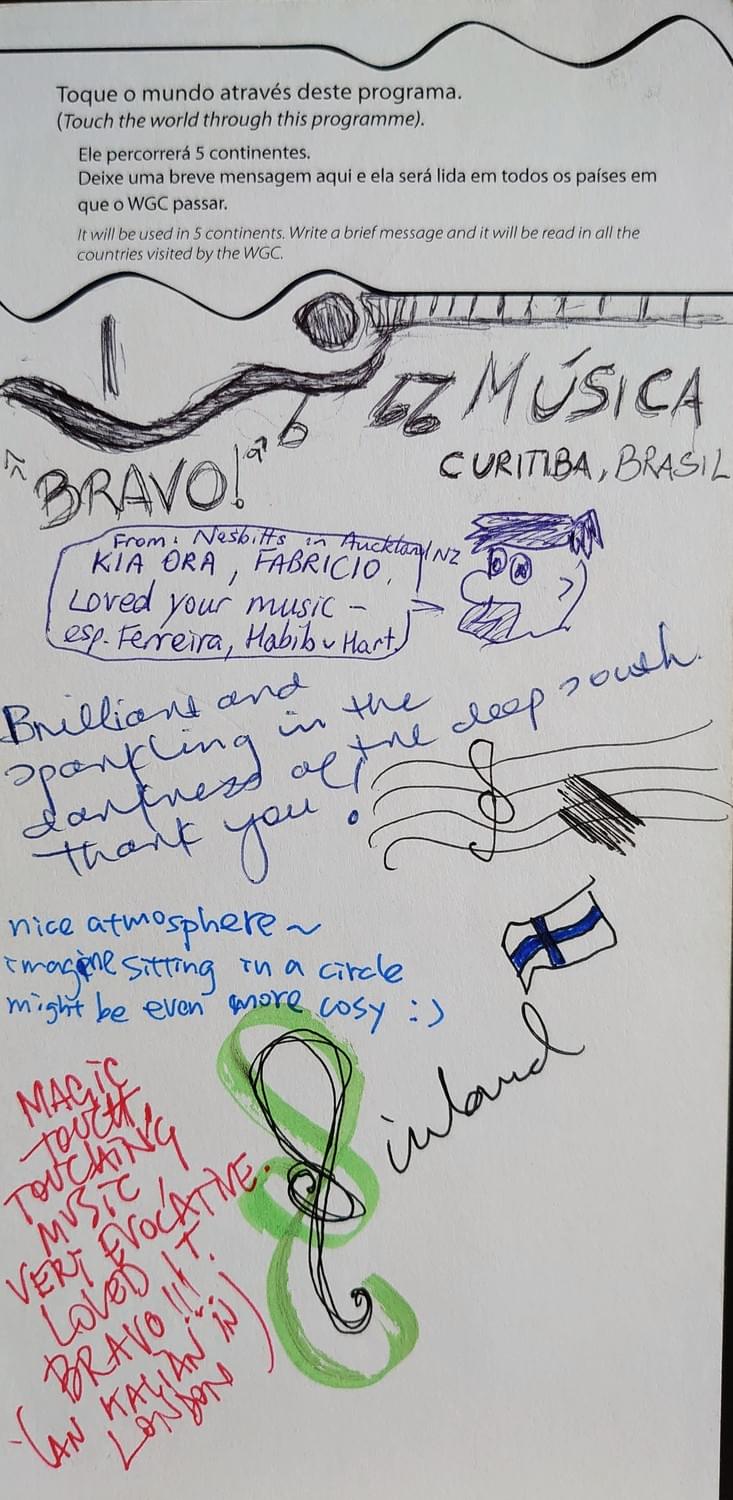 Toque o mundo através deste programa.
(Touch the world through this programme).
Ele percorrerá 5 continentes.
Deixe uma breve mensagem aqui e ela será lida em todos os países em
que o WGC passar.
It will be used in 5 continents. Write a brief message and it will be read in all the
countries visited by the WGC.
MÚSICA
CURITIBA, BRASIL
BRAVO!
From: Nesbitts in Auckland NZ
KIA ORA, FABRICIO,
Loved your music –
esp. Ferreira, Habib v Hart
Brilliant and
sparkling in the
darkness of the deep south.
thank you!
nice atmosphere ~
imagine sitting in a circle
might be even more cosy :)
inland
MAGIC
TOUCH,
TOUCHING
MUSIC,
VERY EVOCATIVE.
LOVED IT.
BRAVO!!!
(AN ITALIAN IN
LONDON)